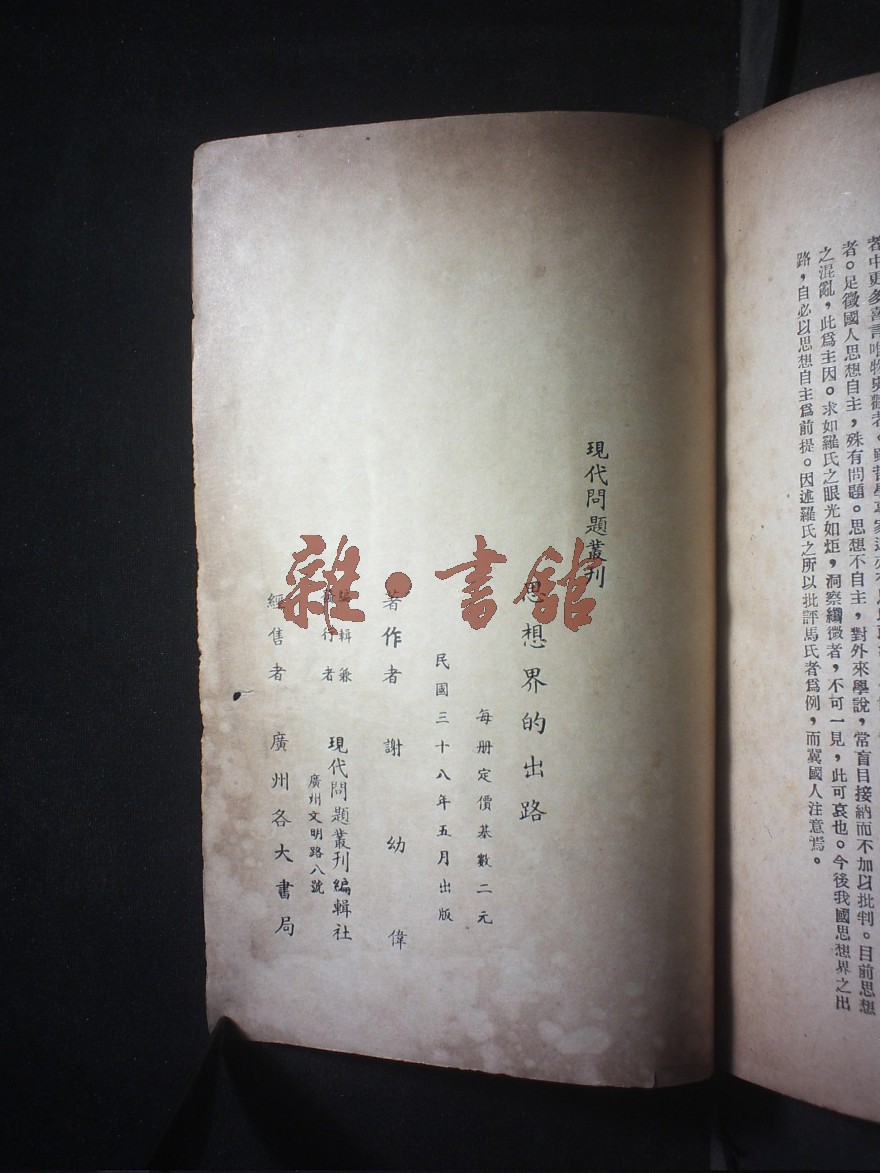 者。足徵國人思想自主，殊有問題。思想不自主，對外來學說，常盲目接納而不加以批判。目前思想
之混亂，此爲主因。求如羅氏之眼光如炬，洞察纖微者，不可一見，此可哀也。今後我國思想界之出
路，自必以思想自主爲前提。因述羅氏之所以批評馬氏者爲例，而冀國人注意焉。
現代問題叢刊
思想界的出路
每册定價基數二元
民國三十八年五月出版
著作者 謝幼偉
編輯兼
發行者
現代問題叢刊編輯社
廣州文明路八號
經售者 廣州各大書局
雜·書館